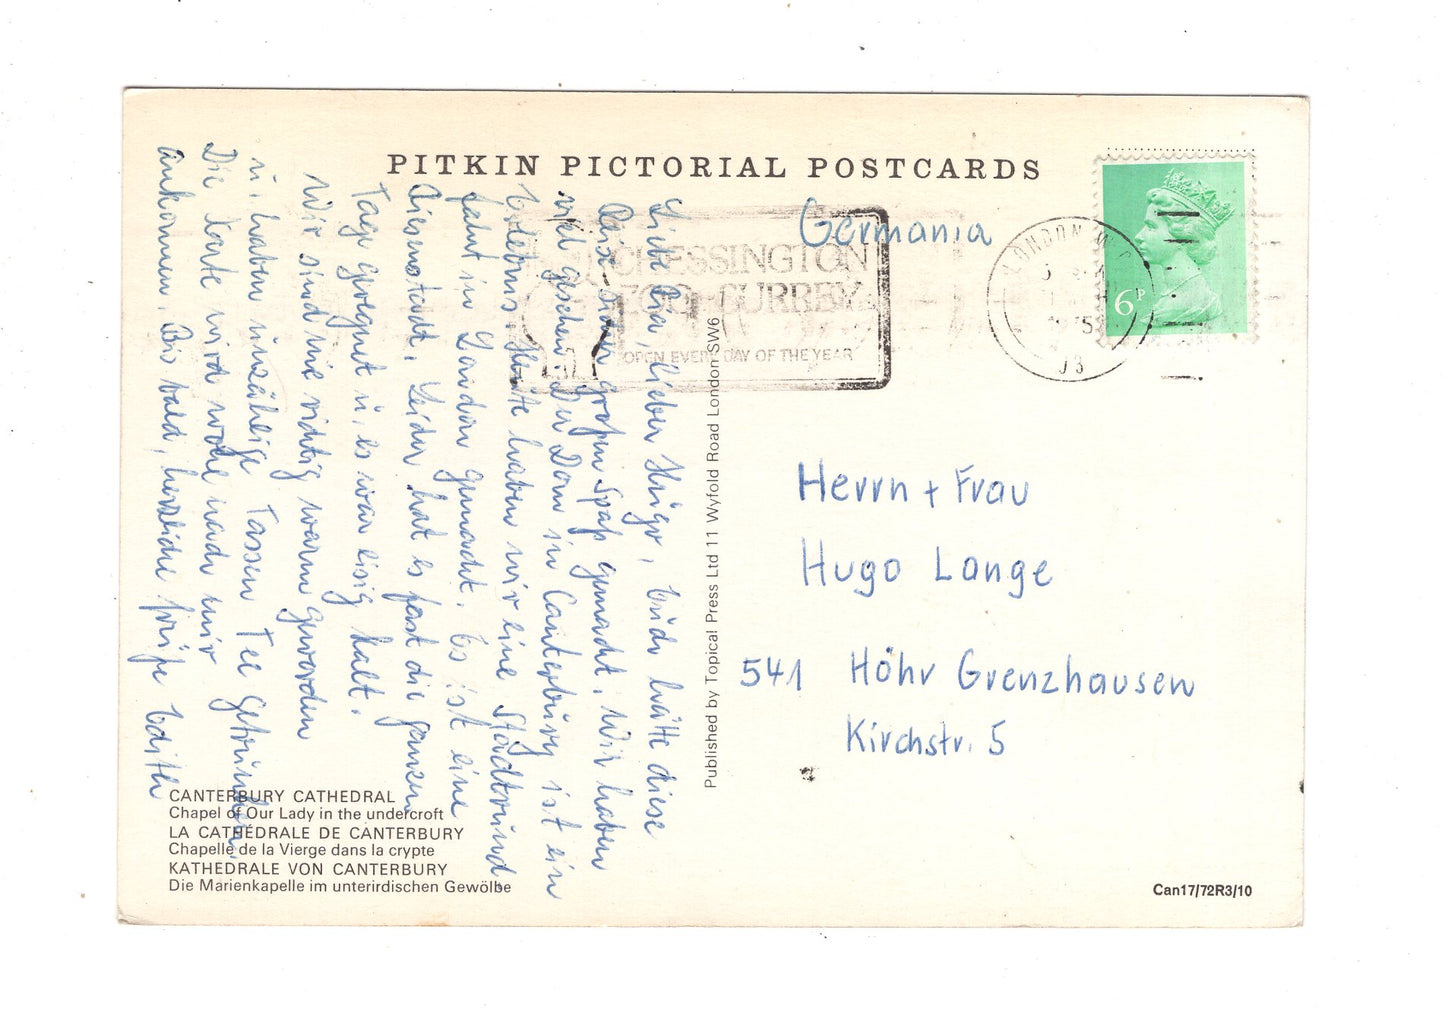 PITKIN PICTORIAL POSTCARDS
Germania
CHESSINGTON
ZOO SURREY
OPEN EVERY DAY OF THE YEAR
LONDON
6P
Herrn + Frau
Hugo Lange
541 Höhr Grenzhausen
Kirchstr. 5
Published by Topical Press Ltd 11 Wyfold Road London SW6
Liebe Pia, lieber Hugo, bisher hätte diese
Reise großen Spaß gemacht. Wir haben
viel gesehen. Der Dom in Canterbury ist ein
Erlebnis. Heute haben wir eine Stadtrund
fahrt in London gemacht. Es ist eine
Riesenstadt. Leider hat es fast die ganzen
Tage geregnet u. es war eisig kalt.
Wir sind nie richtig warm geworden
u. haben unzählige Tassen Tee getrunken.
Die Karte wird wohl nach mir
ankommen. Bis bald, herzliche Grüße Edith
CANTERBURY CATHEDRAL
Chapel of Our Lady in the undercroft
LA CATHÉDRALE DE CANTERBURY
Chapelle de la Vierge dans la crypte
KATHEDRALE VON CANTERBURY
Die Marienkapelle im unterirdischen Gewölbe
Can17/72R3/10